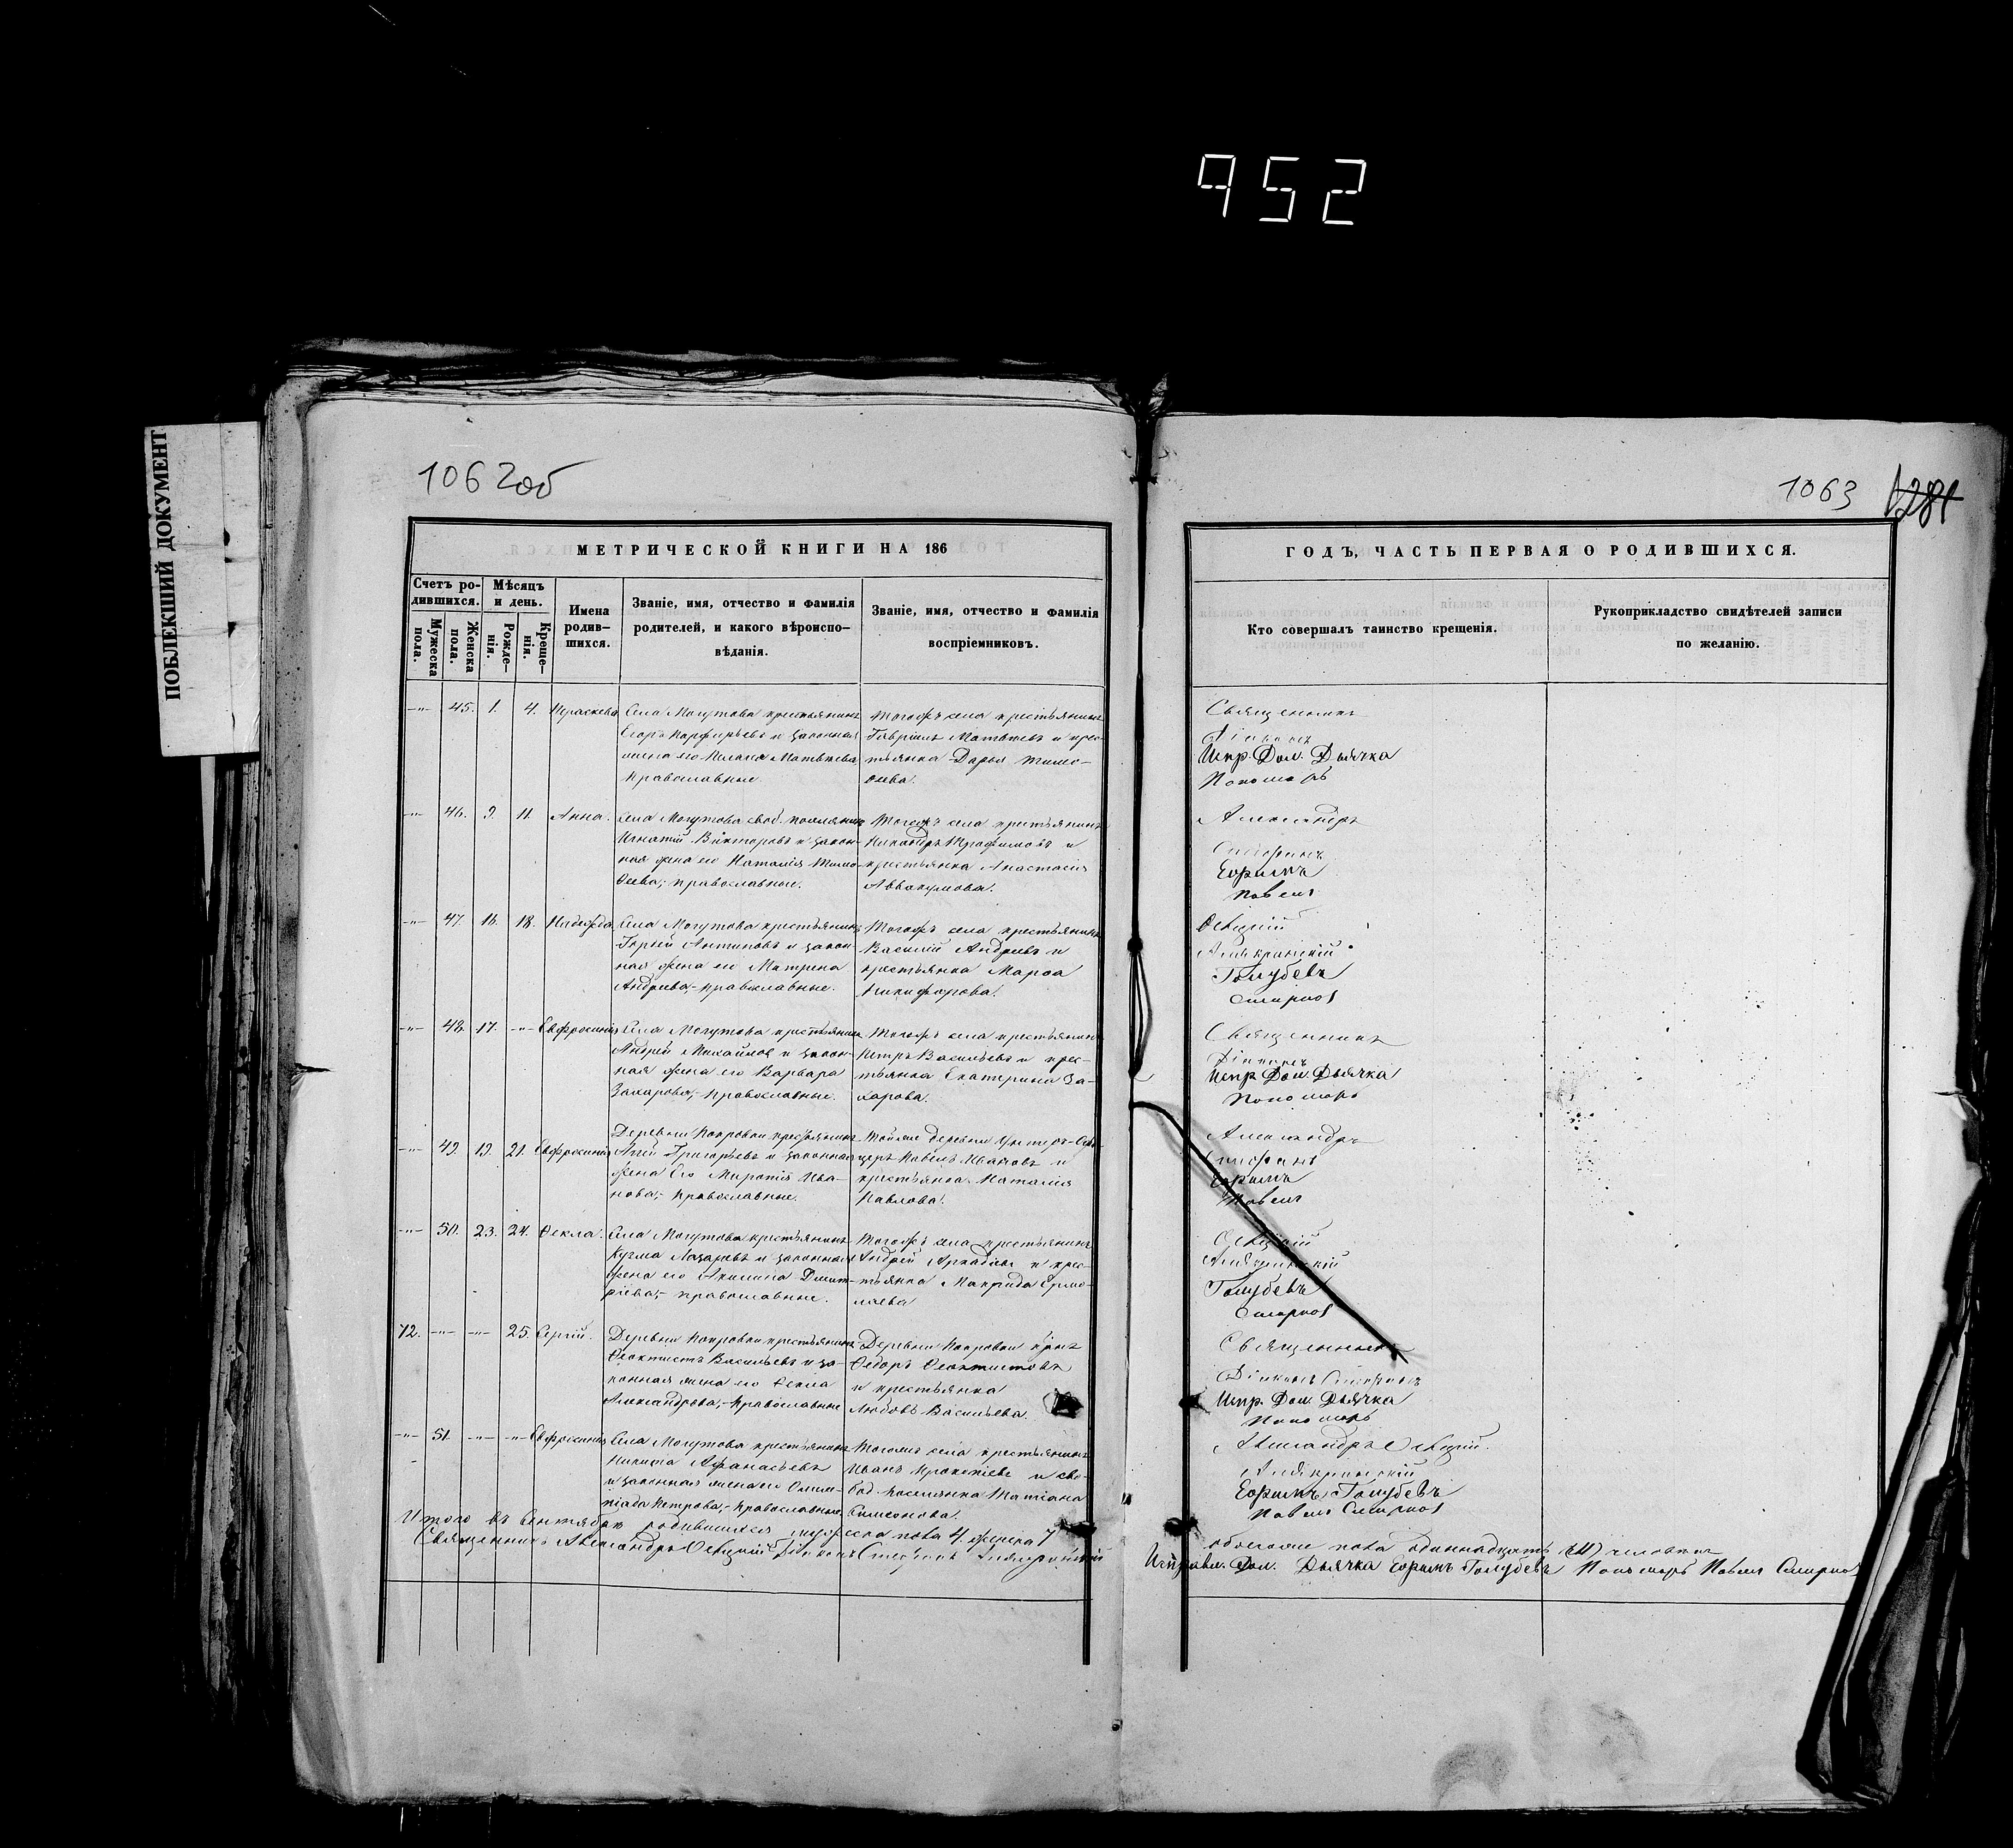 952
ПОБЛЕКШИЙ ДОКУМЕНТ
1062об
1063
1281
МЕТРИЧЕСКОЙ КНИГИ НА 186
Счетъ ро-
дившихся.
Мужеска
пола.
Женска
пола.
Мѣсяцъ
и день.
Рожде-
нія.
Креще-
нія.
Имена
родив-
шихся.
Званіе, имя, отчество и фамилія
родителей, и какого вѣроиспо-
вѣданія.
Званіе, имя, отчество и фамилія
воспріемниковъ.
—"— 45. 1. 4. Параскева
Села Могутова крестьянинъ
Егоръ Порфирьевъ и законная
жена его Матвѣева
Православные.
Тогожъ села крестьянинъ
Гавріилъ Матвѣевъ и крес-
тьянка Дарья Тимо-
ѳеева.
—"— 46. 9. 11. Анна.
Села Могутова своб. поселянинъ
Игнатій Викторовъ и закон-
ная жена его Наталія Тимо-
ѳеева,- православные.
Тогожъ села крестьянинъ
Никандръ Трофимовъ и
крестьянка Анастасія
Аввакумова.
—"— 47. 16. 18. Надежда.
Села Могутова крестьянинъ
Гурій Антиповъ и закон-
ная жена его Матрена
Андреева,- православные.
Тогожъ села крестьянинъ
Василій Андреевъ и
крестьянка Марѳа
Никифорова.
—"— 48. 17. —"— Евфросинія
Села Могутова крестьянинъ
Андрей Михайловъ и закон-
ная жена его Варвара
Захарова,- православные.
Тогожъ села крестьянинъ
Петръ Васильевъ и крес-
тьянка Екатерина За-
харова.
—"— 49. 19. 21. Евфросинія
Деревни Покровки крестьянинъ
Григорьевъ и законная
жена его Ива-
нова,- православные.
Тойже деревни Унтеръ-Офи-
церъ Павелъ Ивановъ и
крестьянка Наталія
Павлова.
—"— 50. 23. 24. Ѳекла.
Села Могутова крестьянинъ
Кузма Лазаревъ и законная
жена его Акилина Дмит-
ріева,- православные.
Тогожъ села крестьянинъ
Андрей Аркадіевъ и крес-
тьянка Макрида Ермо-
лаева
12. —"— —"— 25. Сергій.
Деревни Покровки крестьянинъ
Ѳеоктистъ Васильевъ и за-
конная жена его Ѳекла
Александрова,- Православные
Деревни Покровки
Ѳедоръ Ѳеоктистовъ
и крестьянка
Любовь Васильева.
—"— 51. —"— —"— Евфросинія
Села Могутова крестьянинъ
Никита Афанасьевъ
и законная жена его Олим-
піада Петрова,- Православные
Тогожъ села крестьянинъ
Иванъ Прокопіевъ и сво-
бод. поселянка Татіана
Симеонова.
Итого въ Сентябрѣ родившихся мужеска пола 4. женска 7
Священникъ Александръ Діаконъ Стефанъ Алякринскій
ГОДЪ, ЧАСТЬ ПЕРВАЯ О РОДИВШИХСЯ.
Кто совершалъ таинство крещенія.
Рукоприкладство свидѣтелей записи
по желанію.
Священникъ
Діаконъ
Испр. Дол. Дьячка
Пономарь
Александръ
Стефанъ
Ефримъ
Павелъ
Алякринскій
Голубевъ
Смирнов
Священникъ
Діаконъ
Испр. Дол. Дьячка
Пономарь
Александръ
Стефанъ
Ефримъ
Павелъ
Алякринскій
Голубевъ
Смирнов
Священникъ
Діаконъ Стефанъ
Испр. Дол. Дьячка
Пономарь
Александръ
Алякринскій
Ефримъ Голубевъ
Павелъ Смирнов
обоего пола одиннадцать (11) человѣкъ
Исправл. Дол. Дьячка Ефримъ Голубевъ Пономарь Павелъ Смирнов